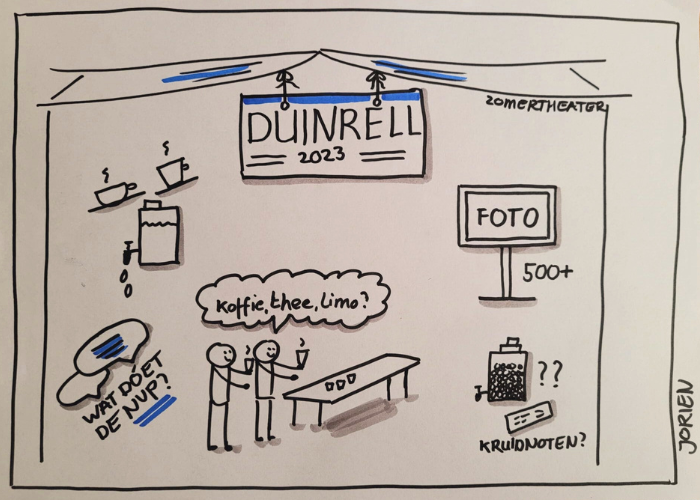 ZOMERTHEATER
DUINRELL
2023
FOTO
500+
Koffie, thee, limo?
WAT DOET
DE NVP?
??
KRUIDNOTEN?
JORIEN